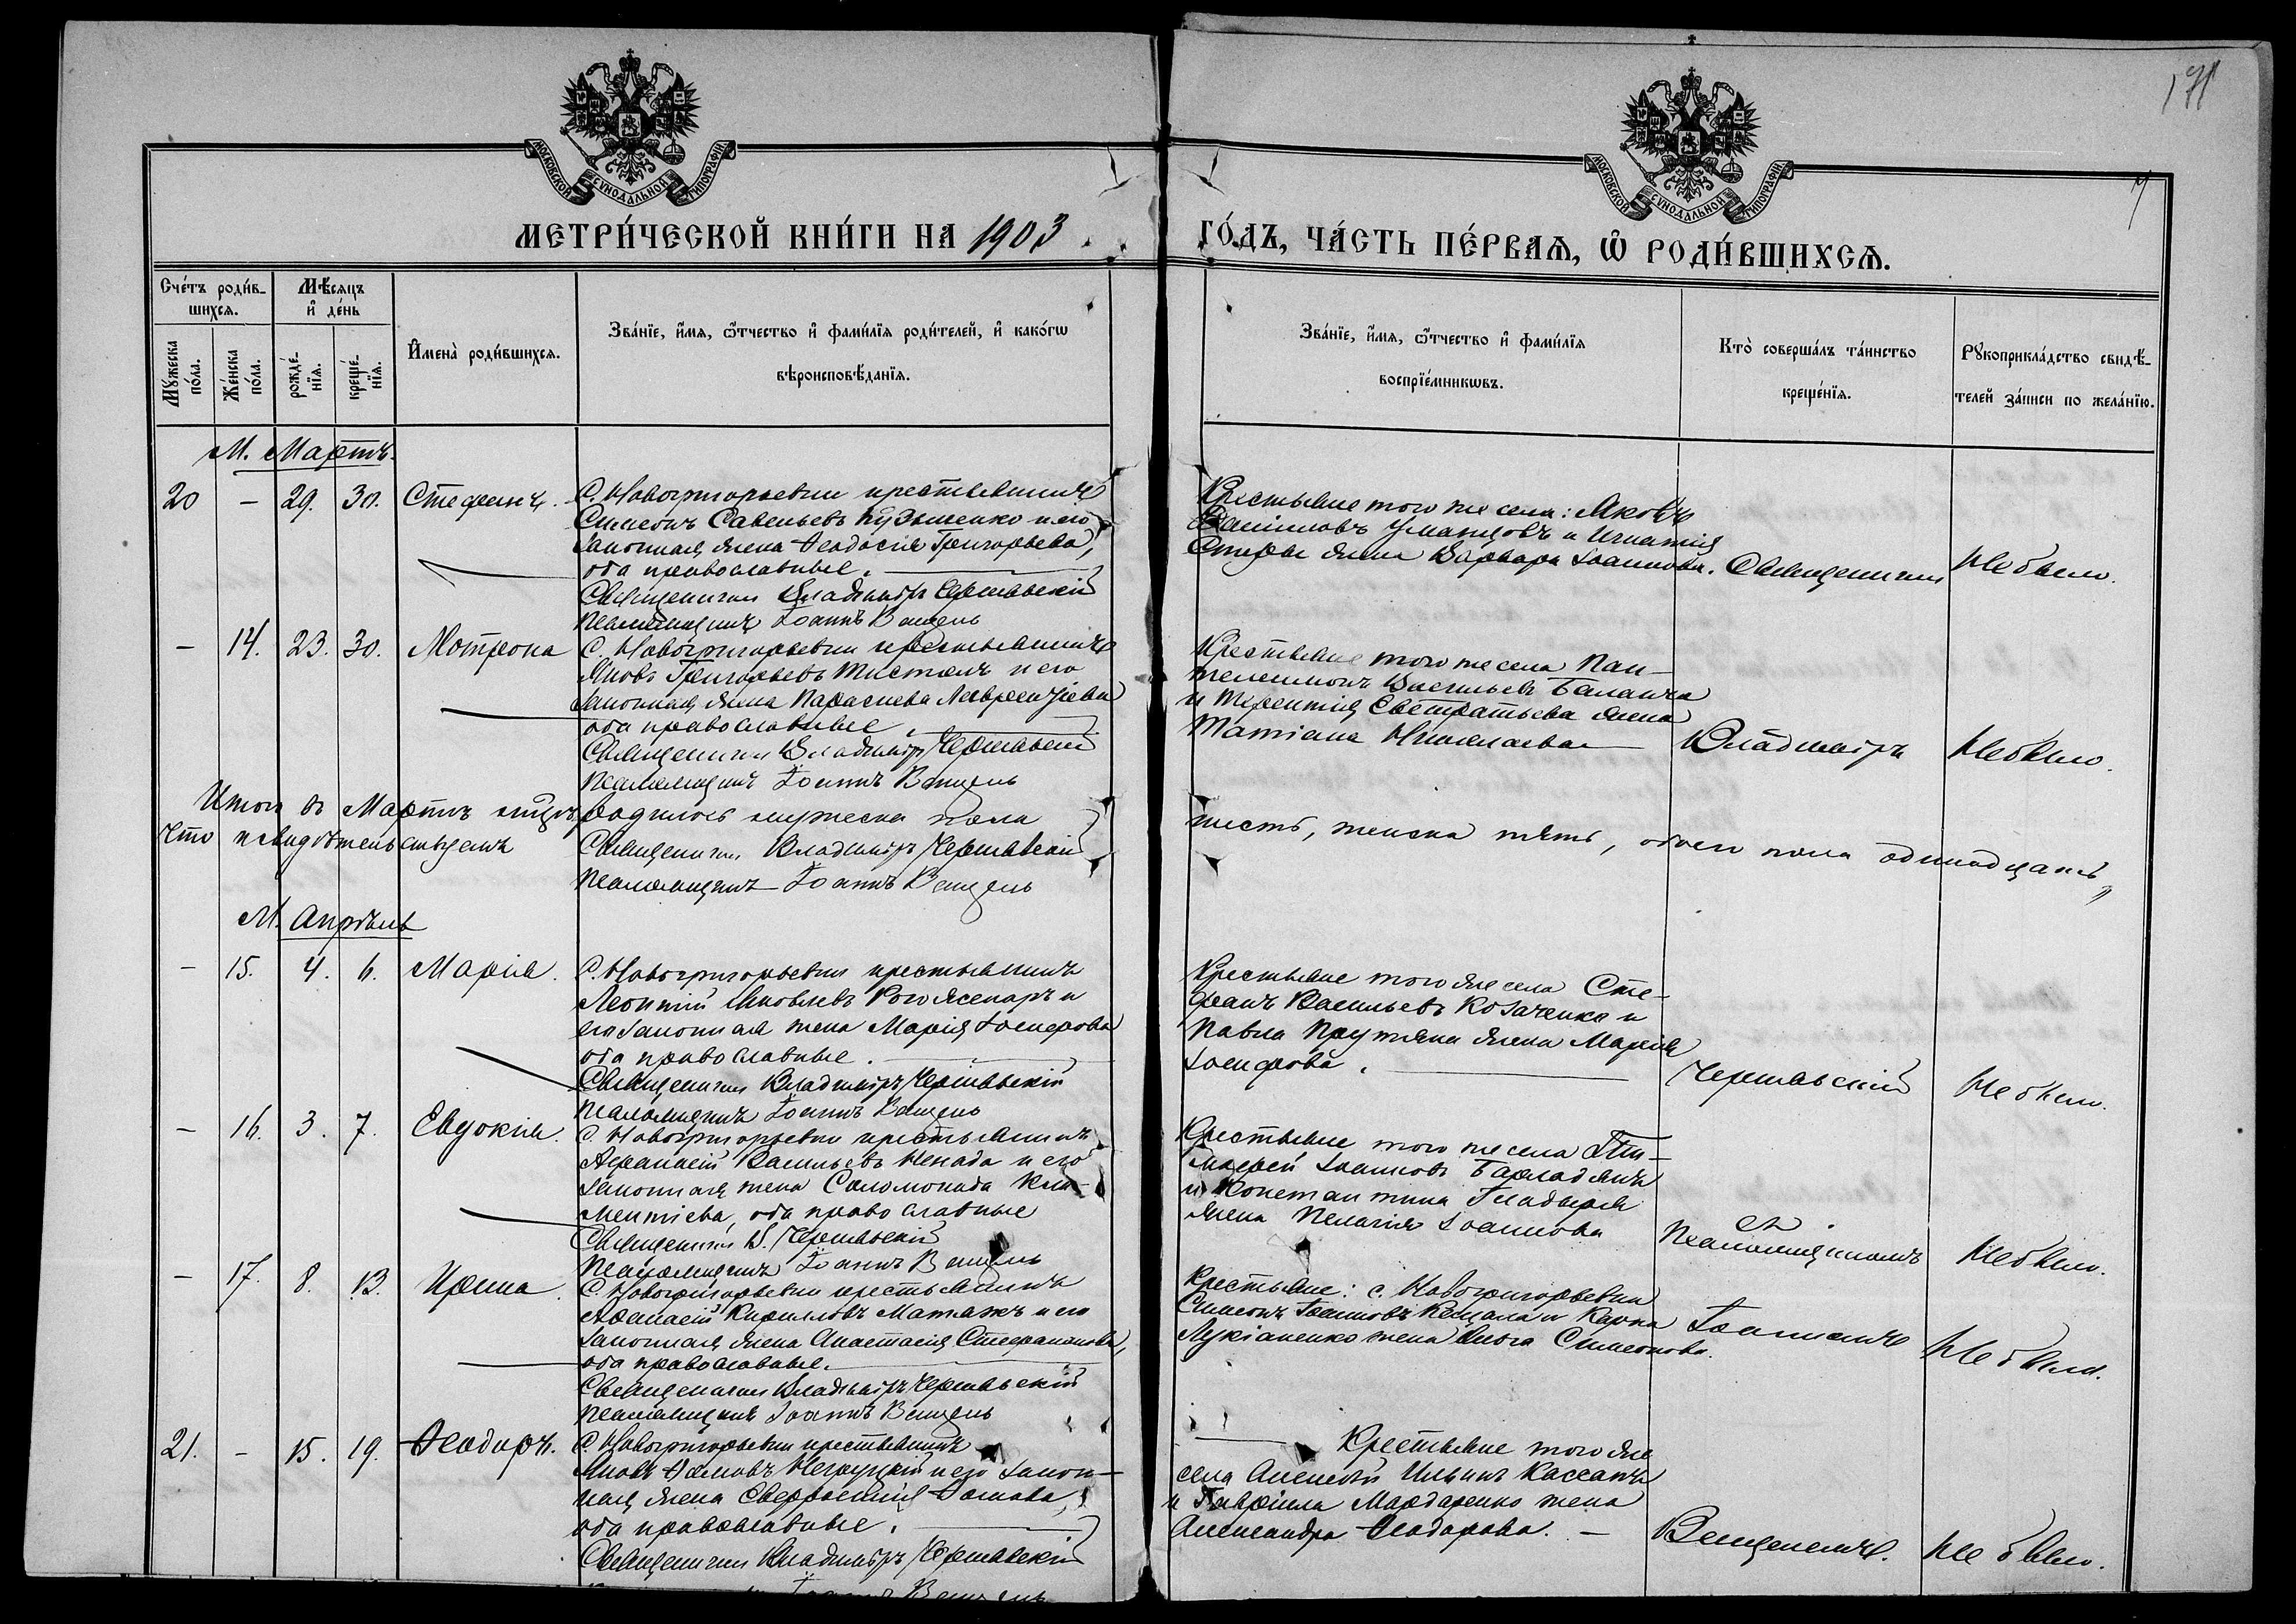 171
7
МОСКОВСКОЙ СУНОДАЛЬНОЙ ТИПОГРАФІИ
МОСКОВСКОЙ СУНОДАЛЬНОЙ ТИПОГРАФІИ
МЕТРИ́ЧЕСКОЙ КНИ́ГИ НА 1903
ГО́ДЪ, ЧА́СТЬ ПЕ́РВАѦ, Ѡ҆ РОДИ́ВШИХСѦ.
Сче́тъ роди́в-
шихсѧ.
Мѣ́сяцъ
и҆ де́нь
Мꙋ́жеска
по́ла.
Же́нска
по́ла.
рожде́-
нїѧ.
креще́-
нїѧ.
И҆мена̀ роди́вшихсѧ.
Зва́нїе, и҆́мѧ, ѻ҆́тчество и҆ фами́лїѧ роди́телей, и҆ како́гѡ
вѣроисповѣ́данїѧ.
Зва́нїе, и҆́мѧ, ѻ҆́тчество и҆ фами́лїѧ
воспрїе́мникѡвъ.
Кто̀ соверша́лъ та́инство
креще́нїѧ.
Рꙋкоприкла́дство свидѣ́-
телей за́писи по жела́нїю.
М. Мартъ.
20 - 29. 30. Стефанъ.
С. Новогригорьевки крестьянинъ
Симеонъ Савельевъ Кузьменко и его
законная жена Ѳеодосія Григорьева,
оба православные.
Священникъ Владиміръ Чернявскій
Псаломщикъ Іоаннъ Венгель
Крестьяне того же села: Яковъ
Даніиловъ Уманцовъ и Игнатія
жена Варвара Іоаннова.
Священникъ
Не было.
- 14. 23. 30. Мотрона
С. Новогригорьевки крестьянинъ
Яковъ Григорьевъ и его
законная жена Параскева Лаврентіева
оба православные.
Священникъ Владиміръ Чернявскій
Псаломщикъ Іоаннъ Венгель
Крестьяне того же села Пан-
телеимонъ Васильевъ
и Терентія Евстратьева жена
Татіана Николаева
Владиміръ
Не было.
Итого въ Мартѣ мѣсяцѣ родилось мужеска пола
шесть, женска пять, обоего пола одинадцать
Что и свидѣтельствуемъ
Священникъ Владиміръ Чернявскій
Псаломщикъ Іоаннъ Венгель
М. Апрѣль
- 15. 4. 6. Марія.
С. Новогригорьевки крестьянинъ
Леонтій Яковлевъ и
его законная жена Марія Іосифова
оба православные.
Священникъ Владиміръ Чернявскій
Псаломщикъ Іоаннъ Венгель
Крестьяне того же села Сте-
фанъ Васильевъ Козаченко и
Павла жена Марія
Іосифова.
Чернявскій
Не было.
- 16. 3. 7. Евдокія.
С. Новогригорьевки крестьянинъ
Афанасій Васильевъ Ненада и его
законная жена Соломонида Кли-
ментіева, оба православные
Священникъ В. Чернявскій
Псаломщикъ Іоаннъ Венгель
Крестьяне того же села Ти-
моѳей Іоанновъ
и Константина Гладыря
жена Пелагія Іоаннова
съ
Псаломщикомъ
Не было.
- 17. 8. 13. Ирина.
С. Новогригорьевки крестьянинъ
Аѳанасій Кирилловъ и его
законная жена Анастасія Стефанова,
оба православные.
Священникъ Владиміръ Чернявскій
Псаломщикъ Іоаннъ Венгель
Крестьяне: с. Новогригорьевки
Симеонъ Іоанновъ и Карпа
Лукіаненко жена Ольга Симеонова.
Іоанномъ
Не было.
21. - 15. 19. Ѳеодоръ.
С. Новогригорьевки крестьянинъ
Яковъ Ѳомовъ Негруцкій и его закон-
ная жена Евфросинія Ѳомова,
оба православные.
Священникъ Владиміръ Чернявскій
Іоаннъ Венгель
Крестьяне того же
села Алексѣй Ильинъ Кассапъ
и Гавріила Мардаренко жена
Александра Ѳеодорова. -
Венгелемъ.
Не было.